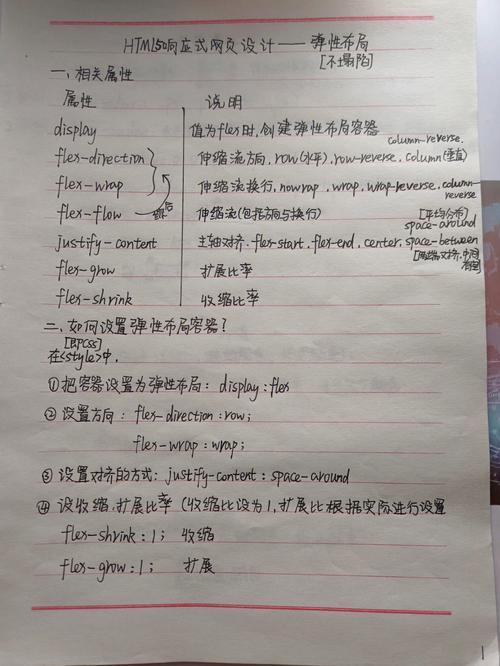 HTML5响应式网页设计——弹性布局
[不塌陷]
一、相关属性
属性 说明
display 值为flex时,创建弹性布局容器
column-reverse.
flex-direction 伸缩流方向,row(水平),row-reverse,column(垂直)
flex-wrap 伸缩流换行,nowrap,wrap,wrap-reverse,column-reverse
flex-flow 伸缩流(包括方向与换行)
[平均分布]
space-around
justify-content 主轴对齐,flex-start,flex-end,center,space-between
[两端对齐,中间
flex-grow 扩展比率
flex-shrink 收缩比率
二、如何设置弹性布局容器?
[即css]
在<style>中,
①把容器设置为弹性布局:display:flex
②设置方向:flex-direction:row;
flex-wrap:wrap;
③设置对齐的方式:justify-content:space-around
④设收缩,扩展比率(收缩比设为1,扩展比根据实际进行设置
flex-shrink:1; 收缩
flex-grow:1; 扩展